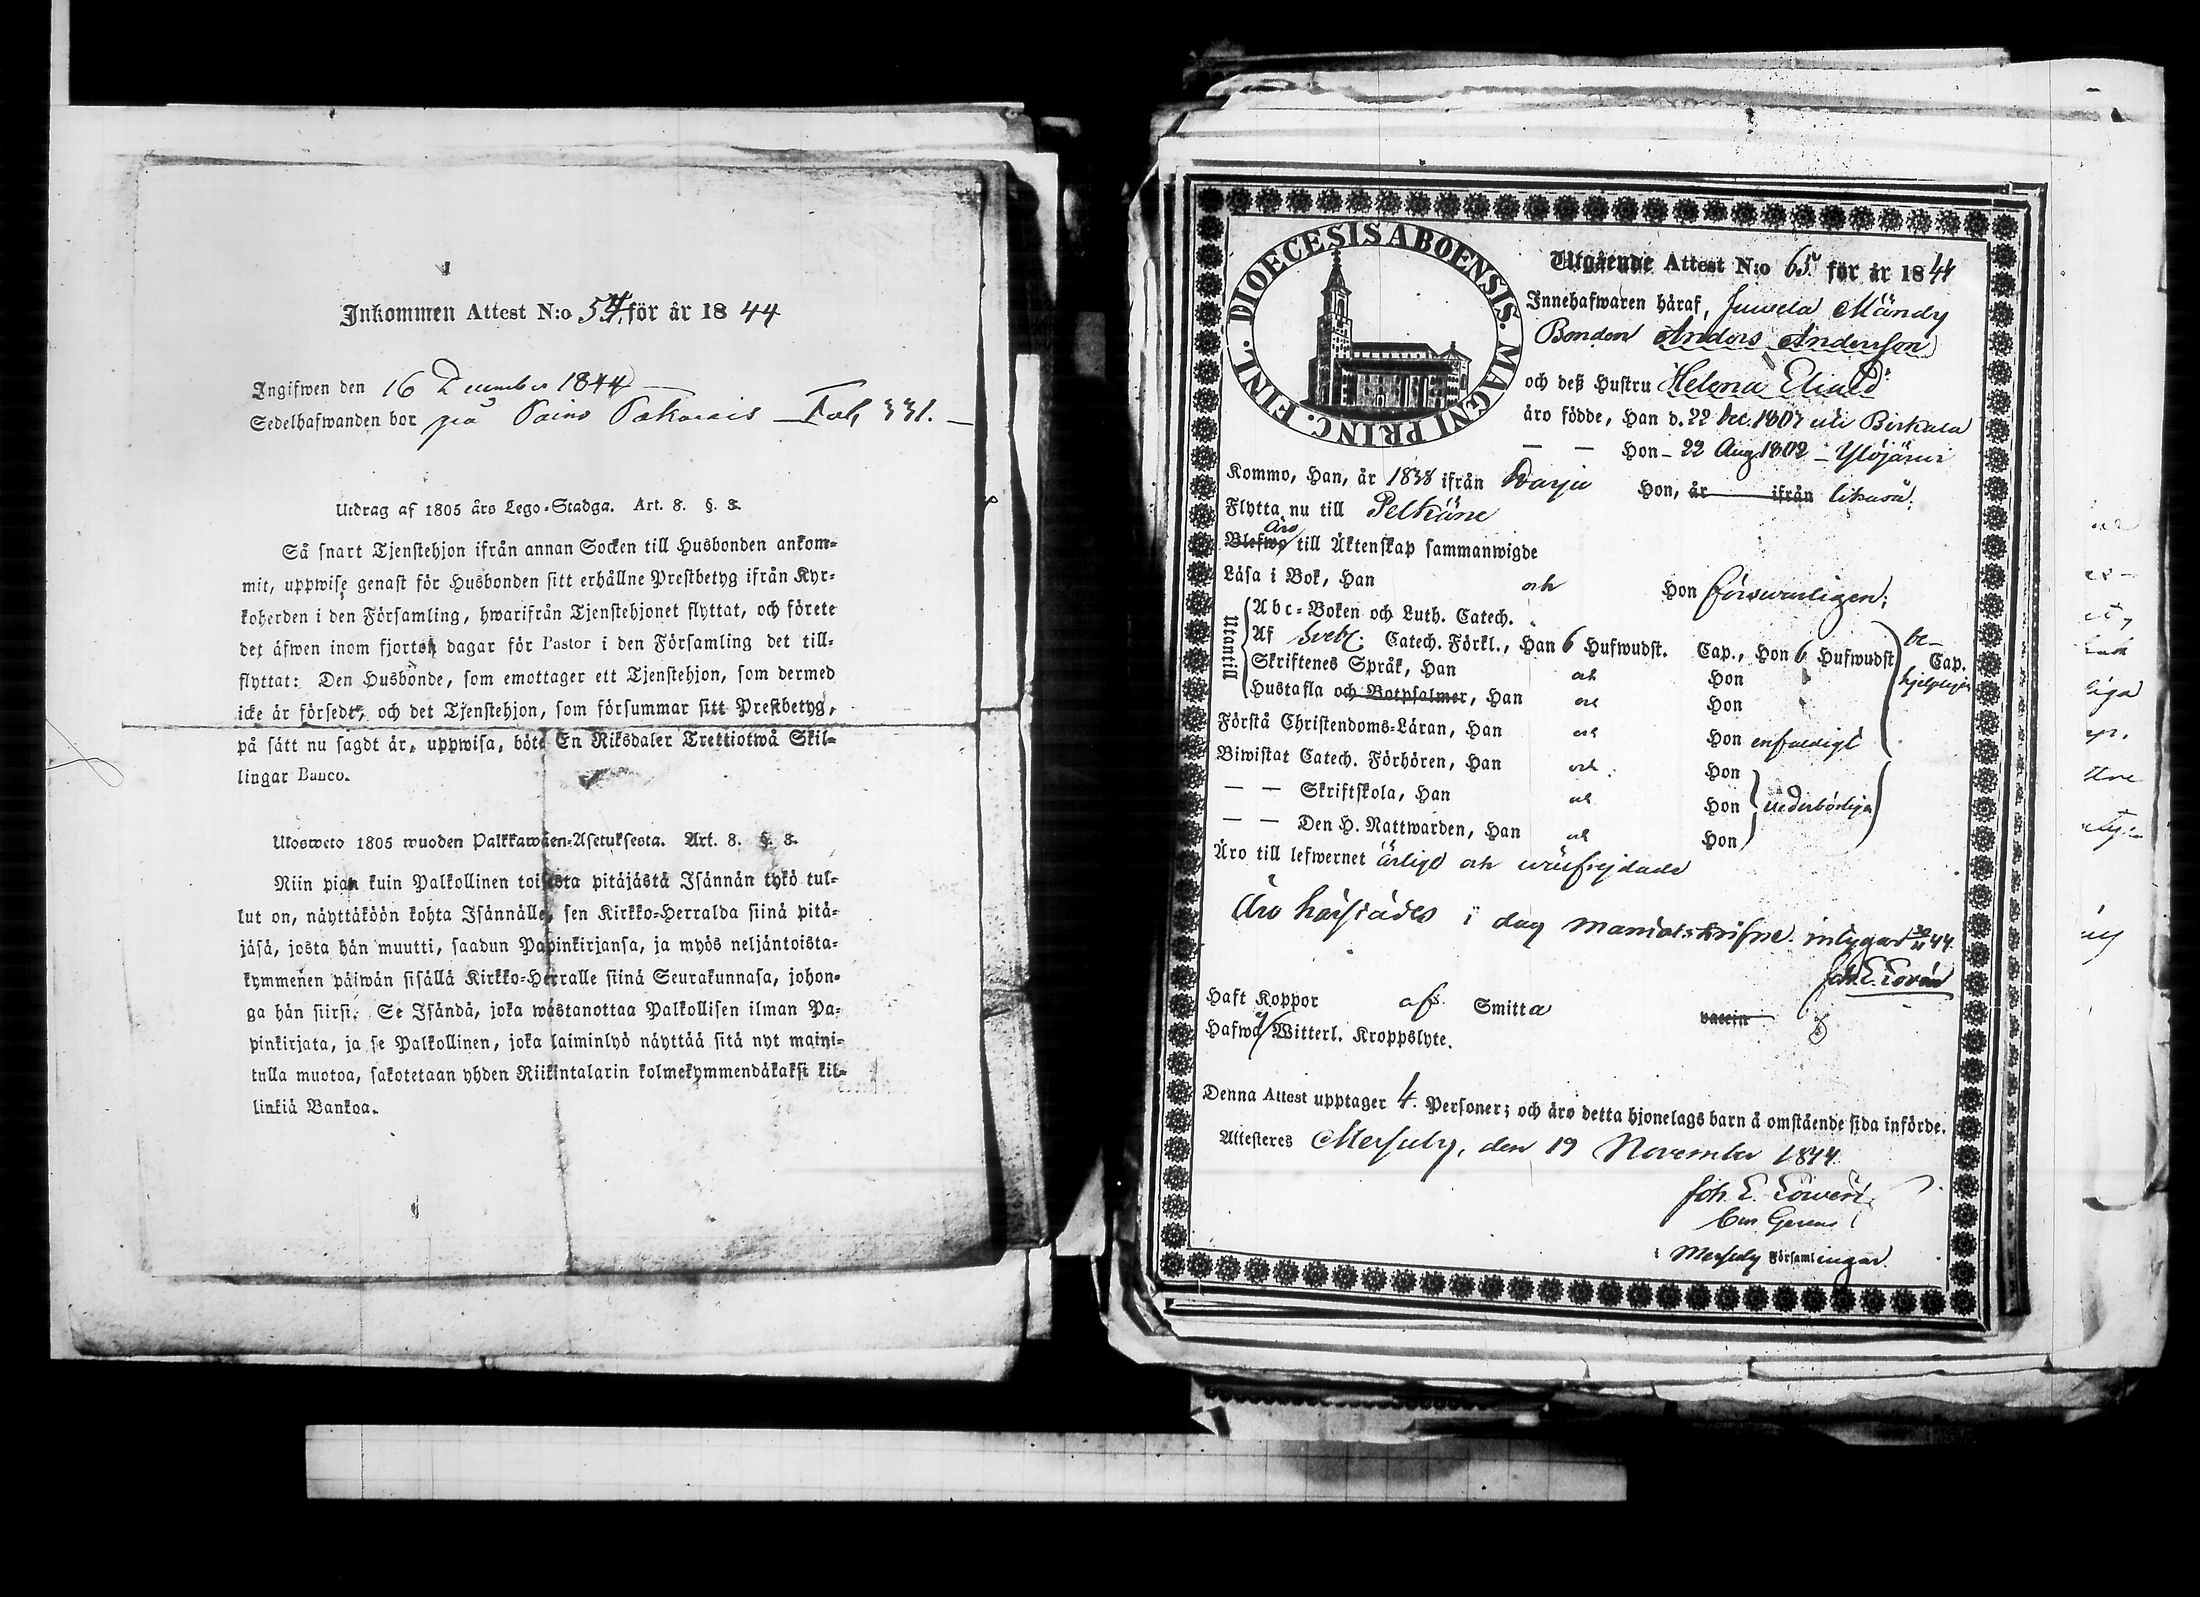 Inkommen Attest N:o 54 för år 18 44
Ingifwen den 16 December 1844
Sedelhafwanden bor på Paino Pakarais — Fol, 331.
Utdrag af 1805 års Lego-Stadga. Art. 8. §. 3.
Så snart Tjenstehjon ifrån annan Socken till Husbonden ankom-
mit, uppwise genast för Husbonden sitt erhållne Prestbetyg ifrån Kyr-
koherden i den Församling, hwarifrån Tjenstehjonet flyttat, och förete
det äfwen inom fjorton dagar för Pastor i den Församling det till-
flyttat: Den Husbonde, som emottager ett Tjenstehjon, som dermed
icke är försedt, och det Tjenstehjon, som försummar sitt Prestbetyg,
på sätt nu sagdt är, uppwisa, böte En Riksdaler Trettiotwå Skil-
lingar Banco.
Ulosweto 1805 wuoden Palkkawäen-Asetuksesta. Art. 8. §. 3.
Niin pian kuin Palkollinen toisesta pitäjästä Isännän tykö tul-
lut on, näyttäköön kohta Isännälle, sen Kirkko-Herralda siinä pitä-
jäsä, josta hän muutti, saadun Papinkirjansa, ja myös neljäntoista-
kymmenen päiwän sisällä Kirkko-Herralle siinä Seurakunnasa, johon-
ga hän siirsi. Se Isändä, joka wastanottaa Palkollisen ilman Pa-
pinkirjata, ja se Palkollinen, joka laiminlyö näyttää sitä nyt maini-
tulla muotoa, sakotetaan yhden Riikintalarin kolmekymmendäkaksi kil-
linkiä Bankoa.
DIOECESIS ABOENSIS. MAGNI PRINC. FINL.
Utgående Attest N:o 65 för år 1844
Innehafwaren häraf, Juusela Mändy
Bonden Anders Andersson
och deß Hustru Helena Eliaed:
äro födde, Han d. 22 Dec. 1807 uti Birkala
— — Hon - 22 Aug 1802 - Ylöjärvi
Kommo, Han, år 1838 ifrån Harju Hon, år ifrån likaså;
Flytta nu till Pelkäne
äro
Blefwo till Äktenskap sammanwigde
Läsa i Bok, Han och Hon försvarligen;
Utantill
Abc-Boken och Luth. Catech.
Af Sveb. Catech. Förkl., Han 6 Hufwudst. Cap., Hon 6 Hufwudst Cap.
be-
hjelpligen
Skriftenes Språk, Han och Hon
Hustafla och Botpsalmer, Han och Hon
Förstå Christendoms-Läran, Han och Hon enfaldigt
Biwistat Catech. Förhören, Han och Hon
— — Skriftskola, Han och Hon vederbörligen
— — Den H. Nattwarden, Han och Hon
Äro till lefwernet ärlige och wälfrejdade
Äro härstädes i dag mantalsskrifne. intygar 30/11 44.
Joh. E. Lovén
Haft Koppor af Smitta vaccin
Hafwa Witterl. Kroppslyte.
Denna Attest upptager 4 Personer; och äro detta hjonelags barn å omstående sida införde.
Attesteres Messuby, den 19 November 1844
Joh. E. Lowén
Cur Gerens
i Messuby Församlingar.